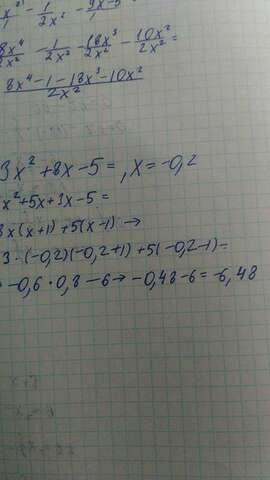 1/2x² 9x-5
8x⁴/2x² - 1/2x² - 18x³/2x² - 10x²/2x² =
8x⁴-1-18x³-10x²/2x²
3x²+8x-5= , x=-0,2
x²+5x+3x-5=
3x(x+1)+5(x-1) →
3·(-0,2)(-0,2+1)+5(-0,2-1)=
-0,6·0,8-6→-0,48-6=-6,48